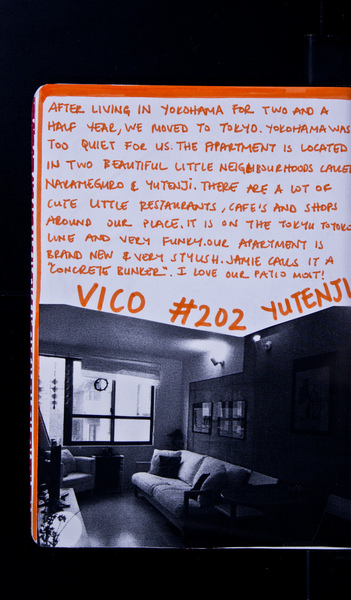 AFTER LIVING IN YOKOHAMA FOR TWO AND A
HALF YEAR, WE MOVED TO TOKYO. YOKOHAMA WAS
TOO QUIET FOR US. THE APARTMENT IS LOCATED
IN TWO BEAUTIFUL LITTLE NEIGHBOURHOODS CALLED
NAKAMEGURO & YUTENJI. THERE ARE A LOT OF
CUTE LITTLE RESTAURANTS, CAFE'S AND SHOPS
AROUND OUR PLACE. IT IS ON THE TOKYU TOYOKO
LINE AND VERY FUNKY. OUR APARTMENT IS
BRAND NEW & VERY STYLISH. JAMIE CALLS IT A
"CONCRETE BUNKER". I LOVE OUR PATIO MOST!
VICO #202 YUTENJI